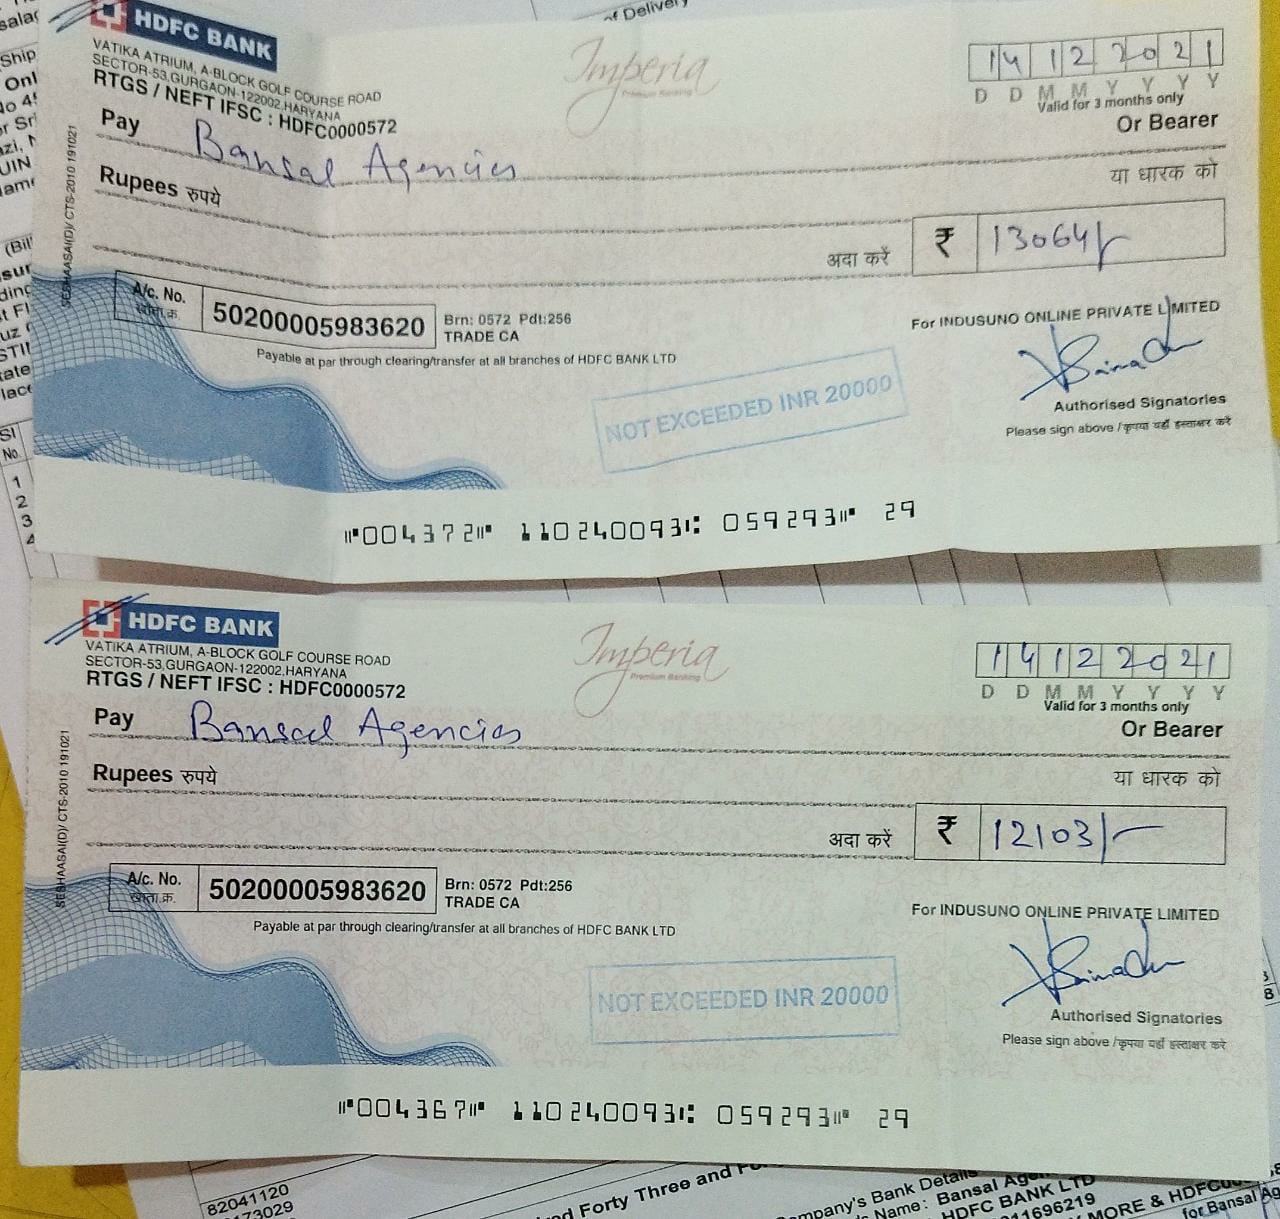 of Delivery
Ship
(Bill
SI
No.
1
2
3
4
HDFC BANK
VATIKA ATRIUM, A-BLOCK GOLF COURSE ROAD
SECTOR-53,GURGAON-122002,HARYANA
RTGS / NEFT IFSC : HDFC0000572
Imperia
Premium Banking
14122021
D D M M Y Y Y Y
Valid for 3 months only
Pay Bansal Agencies Or Bearer
Rupees रुपये या धारक को
अदा करें ₹ 13064/-
SESHAASAI(D)/ CTS-2010 191021
A/c. No.
खाता.क्र.
50200005983620
Brn: 0572 Pdt:256
TRADE CA
For INDUSUNO ONLINE PRIVATE LIMITED
Payable at par through clearing/transfer at all branches of HDFC BANK LTD
NOT EXCEEDED INR 20000
Authorised Signatories
Please sign above /कृपया यहाँ हस्ताक्षर करें
⑈004372⑈ 110240093⑆ 059293⑈ 29
HDFC BANK
VATIKA ATRIUM, A-BLOCK GOLF COURSE ROAD
SECTOR-53,GURGAON-122002,HARYANA
RTGS / NEFT IFSC : HDFC0000572
Imperia
Premium Banking
14122021
D D M M Y Y Y Y
Valid for 3 months only
Pay Bansal Agencies Or Bearer
Rupees रुपये या धारक को
अदा करें ₹ 12103/-
SESHAASAI(D)/ CTS-2010 191021
A/c. No.
खाता.क्र.
50200005983620
Brn: 0572 Pdt:256
TRADE CA
For INDUSUNO ONLINE PRIVATE LIMITED
Payable at par through clearing/transfer at all branches of HDFC BANK LTD
NOT EXCEEDED INR 20000
Authorised Signatories
Please sign above /कृपया यहाँ हस्ताक्षर करें
⑈004367⑈ 110240093⑆ 059293⑈ 29
82041120
173029
Forty Three and
Company's Bank Details
Name: Bansal
HDFC BANK LTD
11696219
MORE & HDFC
for Bansal